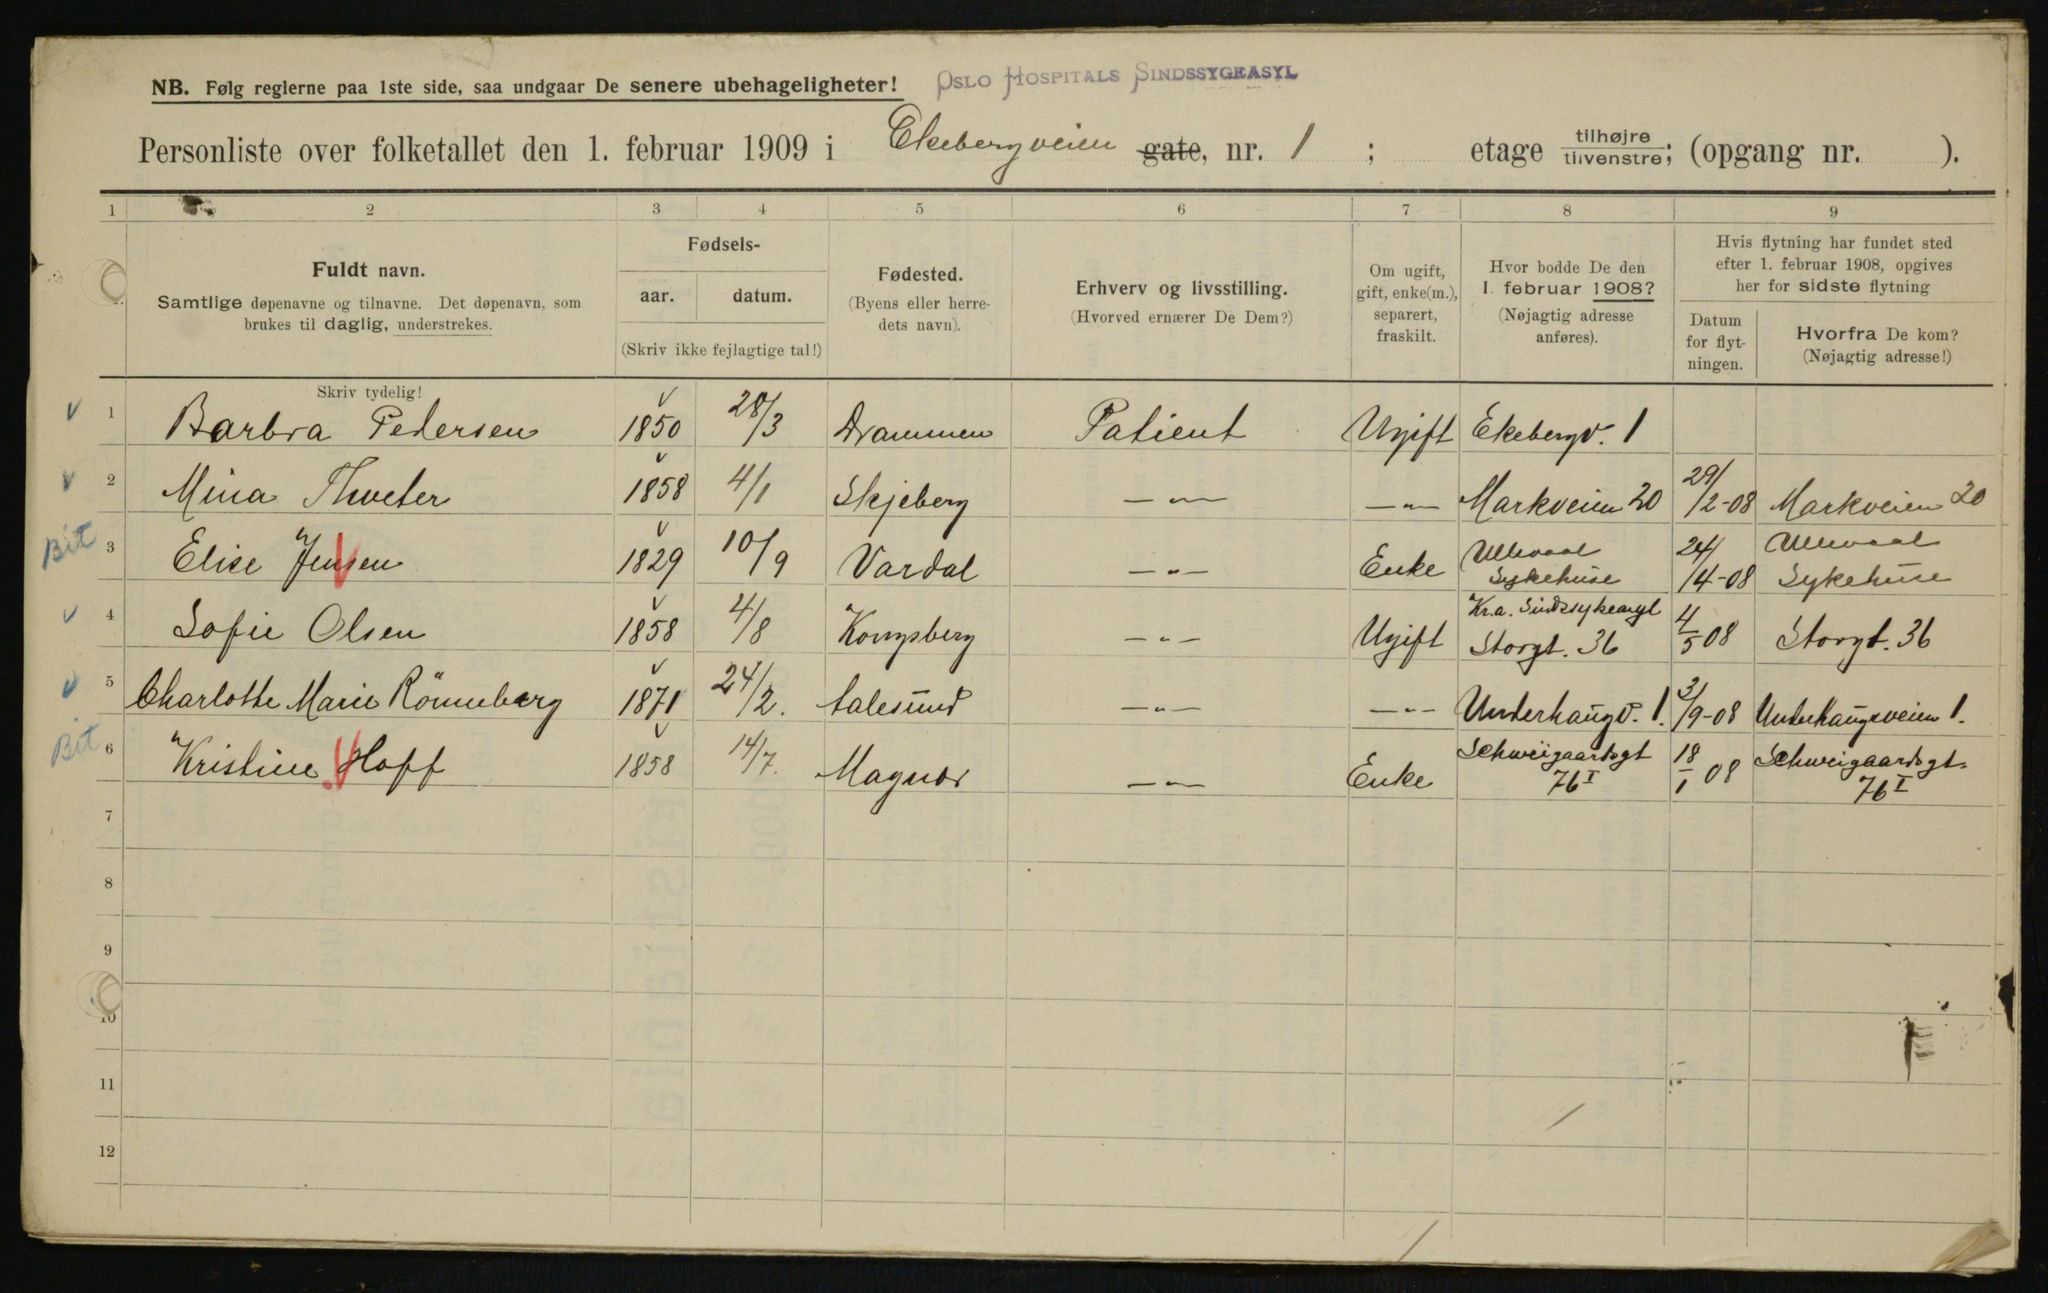 NB. Følg reglerne paa 1ste side, saa undgaar De senere ubehageligheter! OSLO HOSPITALS SINDSSYGEASYL
Personliste over folketallet den 1. februar 1909 i Ekebergveien gate, nr. 1 ; etage tilhøjre tilvenstre; (opgang nr. ).
1 2 3 4 5 6 7 8 9
Fuldt navn.
Samtlige døpenavne og tilnavne. Det døpenavn, som
brukes til daglig, understrekes.
Fødsels-
aar. datum.
(Skriv ikke fejlagtige tal!)
Fødested.
(Byens eller herre-
dets navn).
Erhverv og livsstilling.
(Hvorved ernærer De Dem?)
Om ugift,
gift, enke(m.),
separert,
fraskilt.
Hvor bodde De den
1. februar 1908?
(Nøjagtig adresse
anføres).
Hvis flytning har fundet sted
efter 1. februar 1908, opgives
her for sidste flytning
Datum
for flyt-
ningen.
Hvorfra De kom?
(Nøjagtig adresse!)
Skriv tydelig!
v 1 Barbra Pedersen 1850 28/3 Drammen Patient Ugift Ekebergv. 1
v 2 Mina Thveter 1858 4/1 Skjeberg —"— —"— Markveien 20 29/2-08 Markveien 20
Bit 3 Elise Jensen 1829 10/9 Vardal —"— Enke Ullevaal Sykehuse 24/14-08 Ullevaal Sykehuse
v 4 Sofie Olsen 1858 4/8 Kongsberg —"— Ugift Kr.a. Sindssykeasyl Storgt. 36 4/5 08 Storgt. 36
v 5 Charlotte Marie Rönneberg 1871 24/2. Aalesund —"— —"— Underhaugv. 1. 3/9-08 Underhaugsveien 1.
Bit 6 Kristine Hoff 1858 14/7. Magnor —"— Enke Schweigaardsgt 76 I 18/1 08 Schweigaardsgt. 76 I
7
8
9
10
11
12